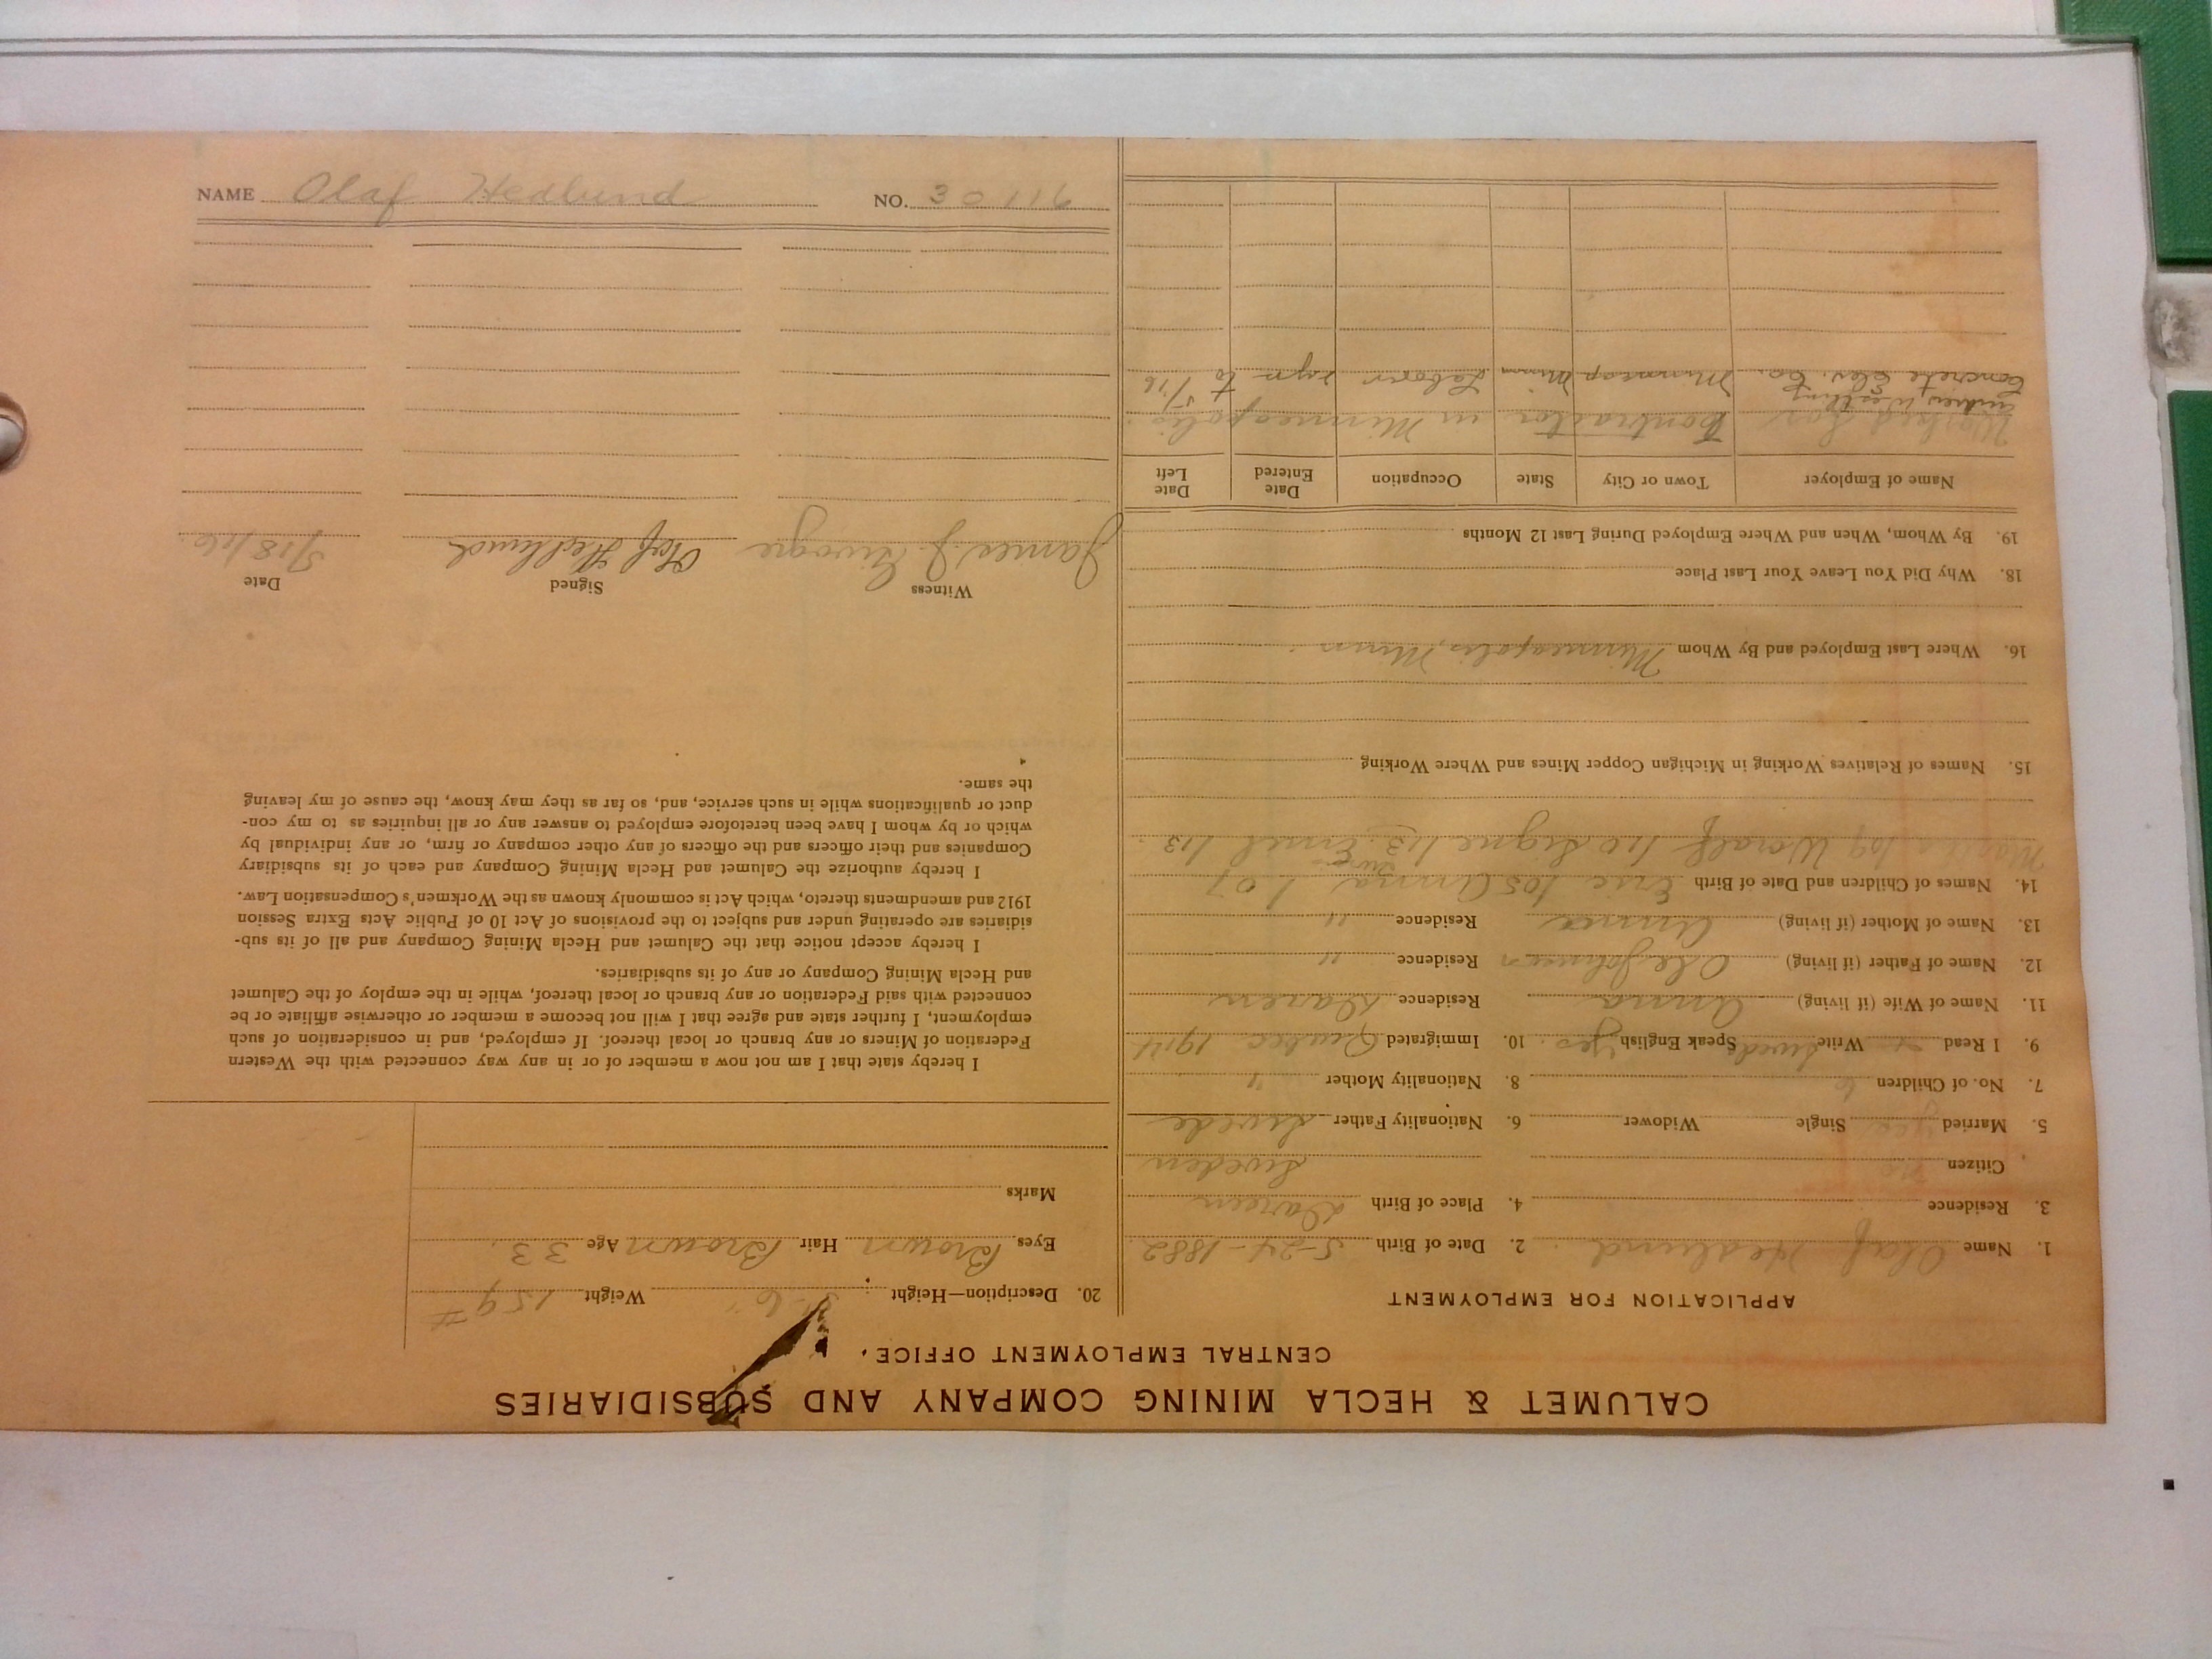 CALUMET & HECLA MINING COMPANY AND SUBSIDIARIES
CENTRAL EMPLOYMENT OFFICE.
APPLICATION FOR EMPLOYMENT
1. Name Olaf Hedlund. 2. Date of Birth 5-24-1882
3. Residence 4. Place of Birth
Citizen no Sweden
5. Married yes Single Widower 6. Nationality Father Swede
7. No. of Children 6 8. Nationality Mother "
9. I Read Write Swede Speak English yes. 10. Immigrated Quebec 1914
11. Name of Wife (if living) Anna Residence
12. Name of Father (if living) Ole Johnson Residence "
13. Name of Mother (if living) Anna Residence "
14. Names of Children and Date of Birth Eric 105 Anna 1 07
Signe 113 Emil 113
15. Names of Relatives Working in Michigan Copper Mines and Where Working
16. Where Last Employed and By Whom Minneapolis, Minn.
18. Why Did You Leave Your Last Place
19. By Whom, When and Where Employed During Last 12 Months
Name of Employer Town or City State Occupation Date Entered Date Left
Worked for Contractor in Minneapolis.
Concrete Elev. Co. Minneap Minn Laborer to 5/16
20. Description—Height 5'-6" Weight 159#
Eyes Brown Hair Brown Age 33.
Marks
I hereby state that I am not now a member of or in any way connected with the Western
Federation of Miners or any branch or local thereof. If employed, and in consideration of such
employment, I further state and agree that I will not become a member or otherwise affiliate or be
connected with said Federation or any branch or local thereof, while in the employ of the Calumet
and Hecla Mining Company or any of its subsidiaries.
I hereby accept notice that the Calumet and Hecla Mining Company and all of its sub-
sidiaries are operating under and subject to the provisions of Act 10 of Public Acts Extra Session
1912 and amendments thereto, which Act is commonly known as the Workmen's Compensation Law.
I hereby authorize the Calumet and Hecla Mining Company and each of its subsidiary
Companies and their officers and the officers of any other company or firm, or any individual by
which or by whom I have been heretofore employed to answer any or all inquiries as to my con-
duct or qualifications while in such service, and, so far as they may know, the cause of my leaving
the same.
Witness Signed Date
James J. Olof Hedlund 5/18/16.
NAME Olaf Hedlund NO. 30116